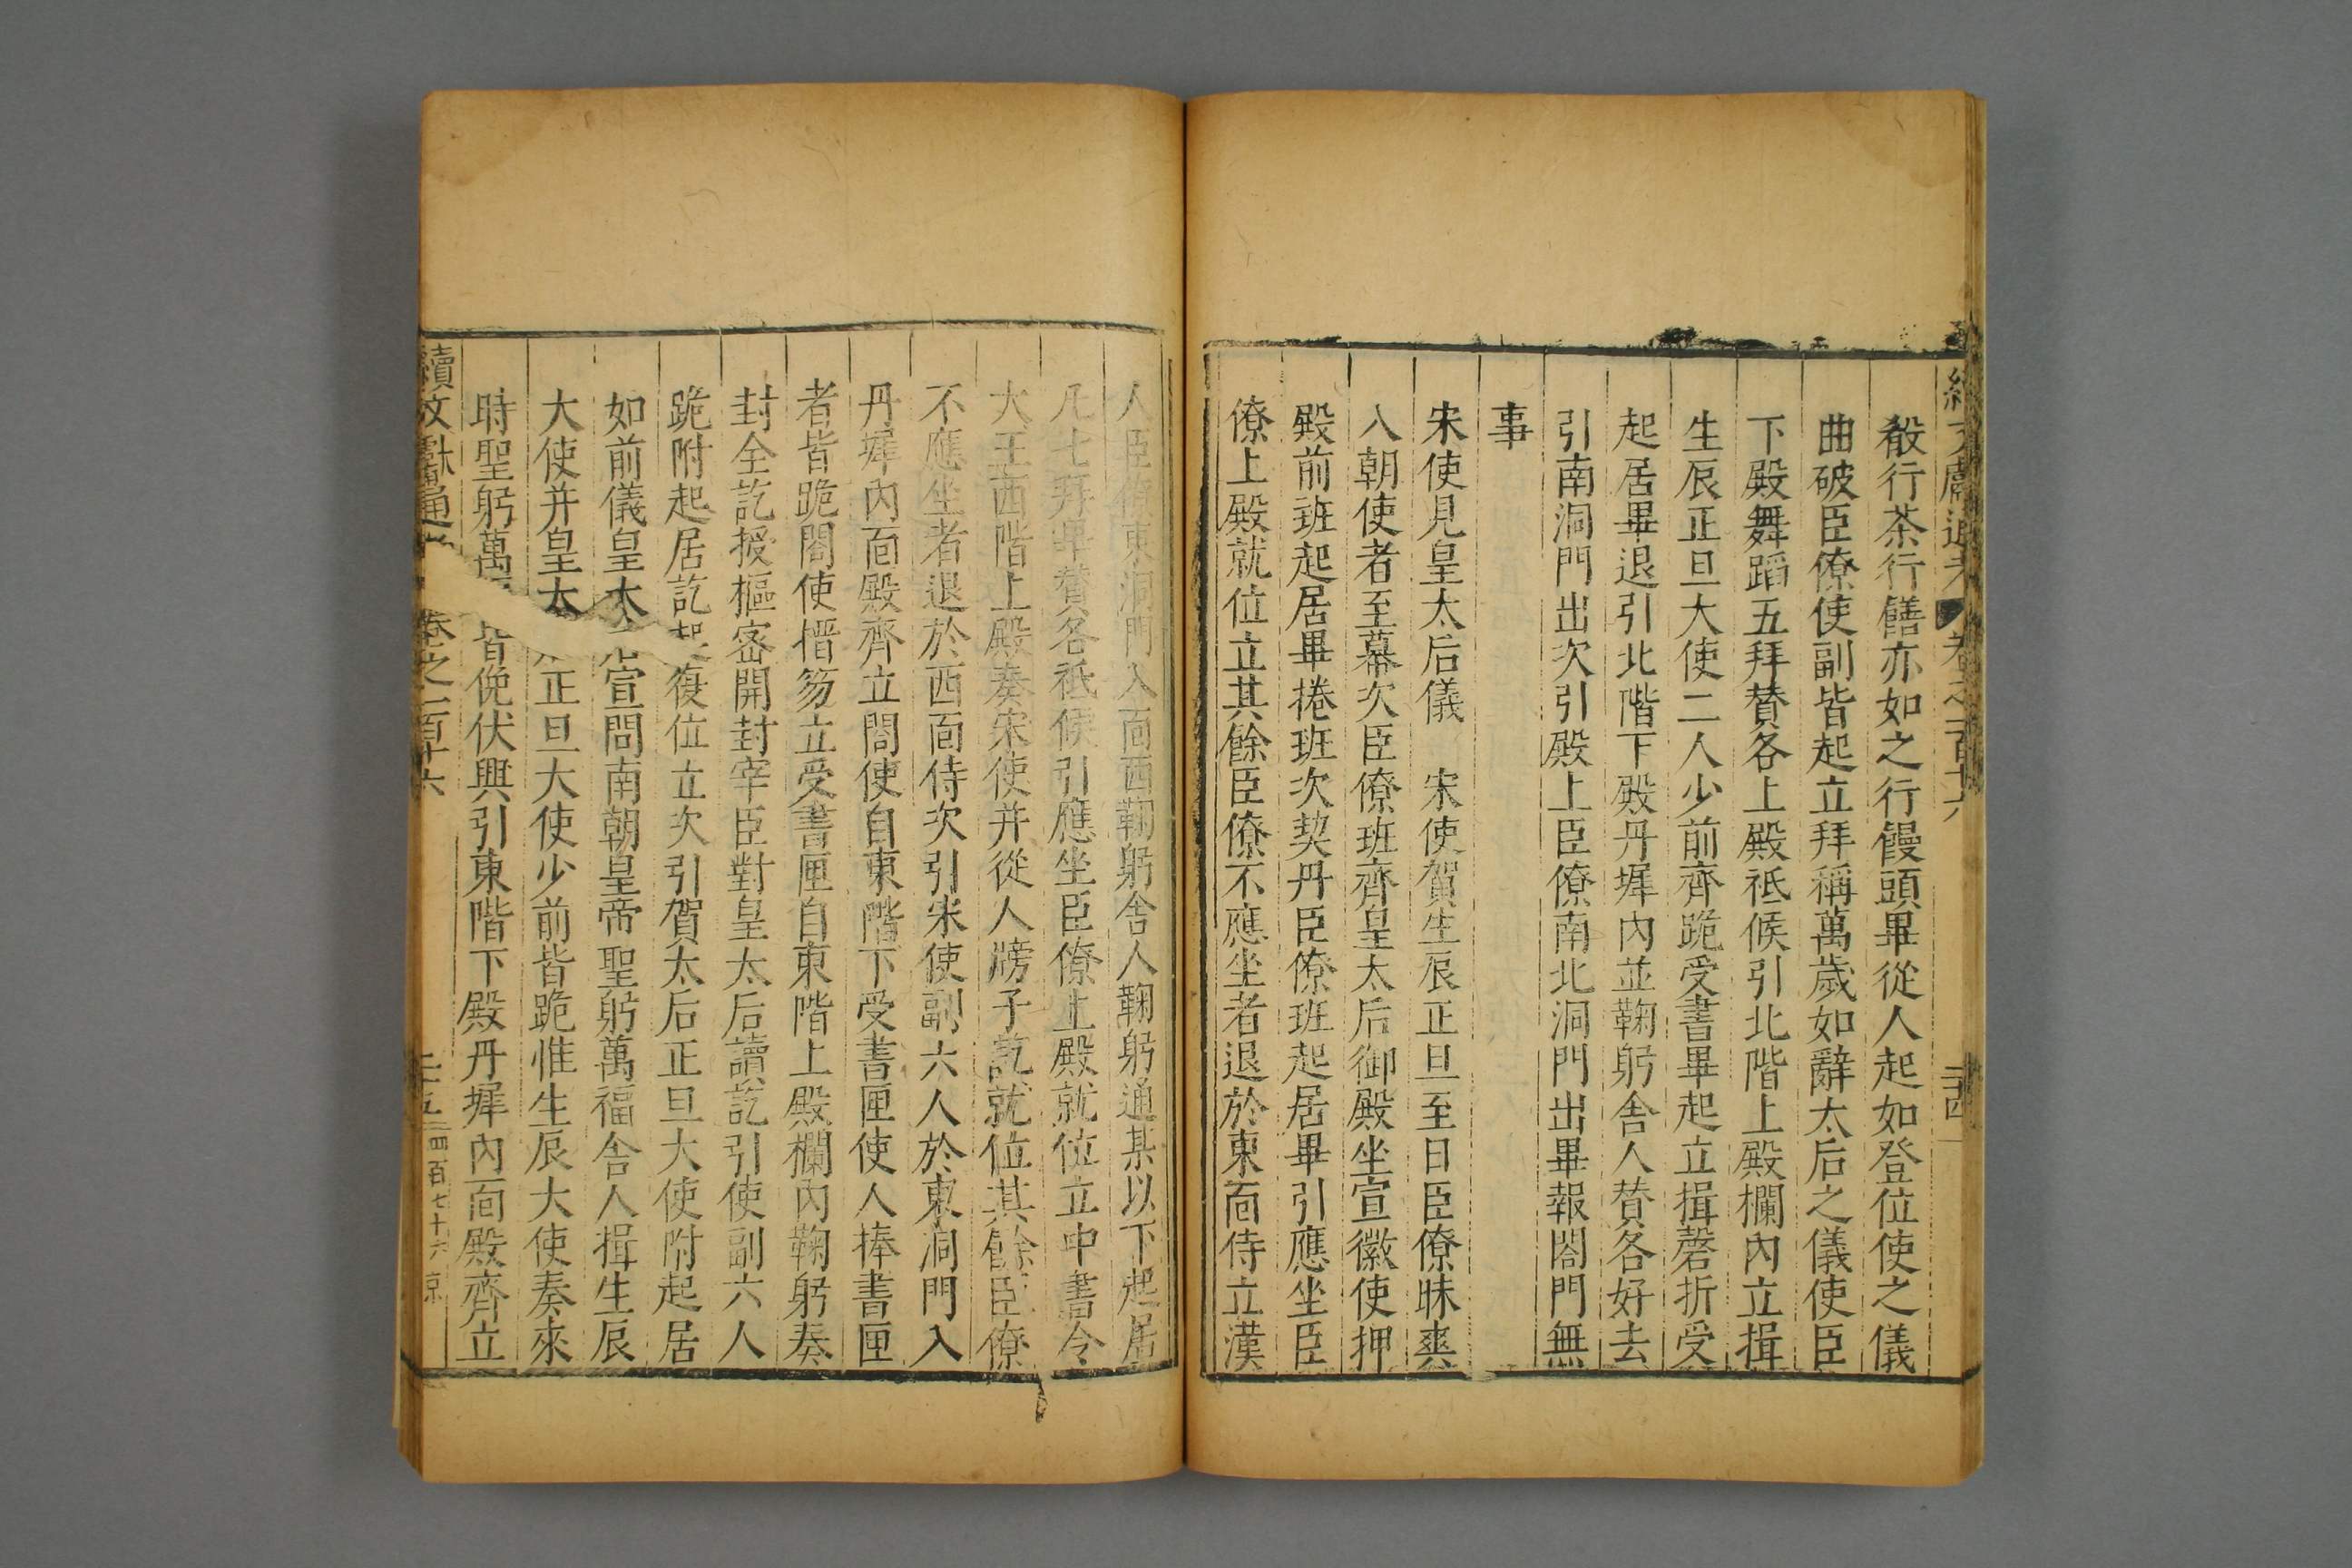 殽行茶行饍亦如之行饅頭畢從人起如登位使之儀
曲破臣僚使副皆起立拜稱萬歲如辭太后之儀使臣
下殿舞蹈五拜賛各上殿祗候引北階上殿欄內立揖
生辰正旦大使二人少前齊跪受書畢起立揖磬折受
起居畢退引北階下殿丹墀內並鞠躬舍人賛各好去
引南洞門出次引殿上臣僚南北洞門出畢報閤門無
事
宋使見皇太后儀　宋使賀生辰正旦至日臣僚昧爽
入朝使者至幕次臣僚班齊皇太后御殿坐宣徽使押
殿前班起居畢捲班次契丹臣僚班起居畢引應坐臣
僚上殿就位立其餘臣僚不應坐者退於東面侍立漢
人臣僚東洞門入面西鞠躬舍人鞠躬通某以下起居
凡七拜畢賛各祗候引應坐臣僚上殿就位立中書令
大王西階上殿奏宋使并從人牓子訖就位其餘臣僚
不應坐者退於西面侍次引宋使副六人於東洞門入
丹墀內面殿齊立閤使自東階下受書匣使人捧書匣
者皆跪閤使搢笏立受書匣自東階上殿欄內鞠躬奏
封全訖授樞密開封宰臣對皇太后讀訖引使副六人
跪附起居訖起復位立次引賀太后正旦大使附起居
如前儀皇太宣問南朝皇帝聖躬萬福舍人揖生辰
大使并皇太正旦大使少前皆跪惟生辰大使奏來
時聖躬萬皆俛伏興引東階下殿丹墀內面殿齊立
續文獻通　卷之一百十六　二十五　四百七十六　京